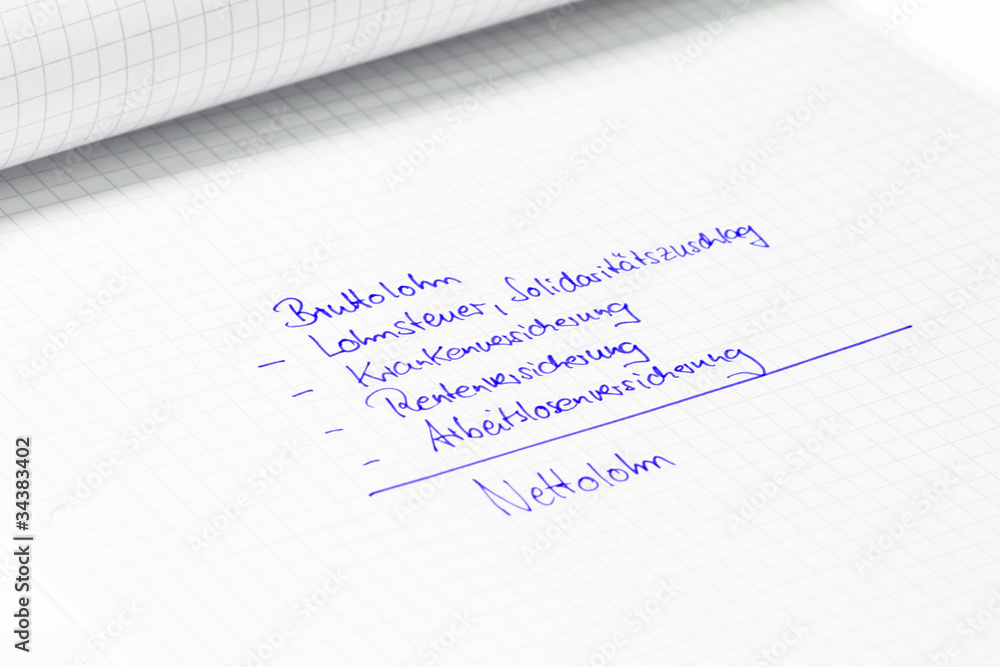 Bruttolohn
- Lohnsteuer, Solidaritätszuschlag
- Krankenversicherung
- Rentenversicherung
- Arbeitslosenversicherung
Nettolohn
Adobe Stock | #34383402